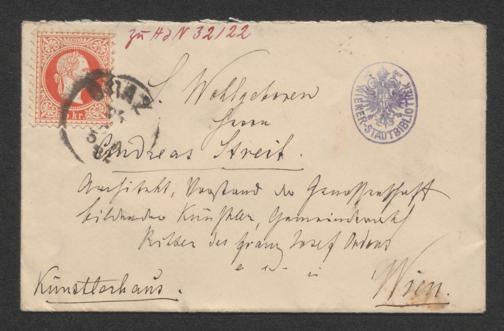 zu HJN 32122
kr.
GRAZ
WIENER-STADTBIBLIOTHEK
S. Wohlgeboren
Herrn
Andreas Streit.
Architekt, Vorstand der Genossenschaft
bildender Künstler, Gemeinderath
Ritter des Franz Josef Ordens
Künstlerhaus.
Wien.